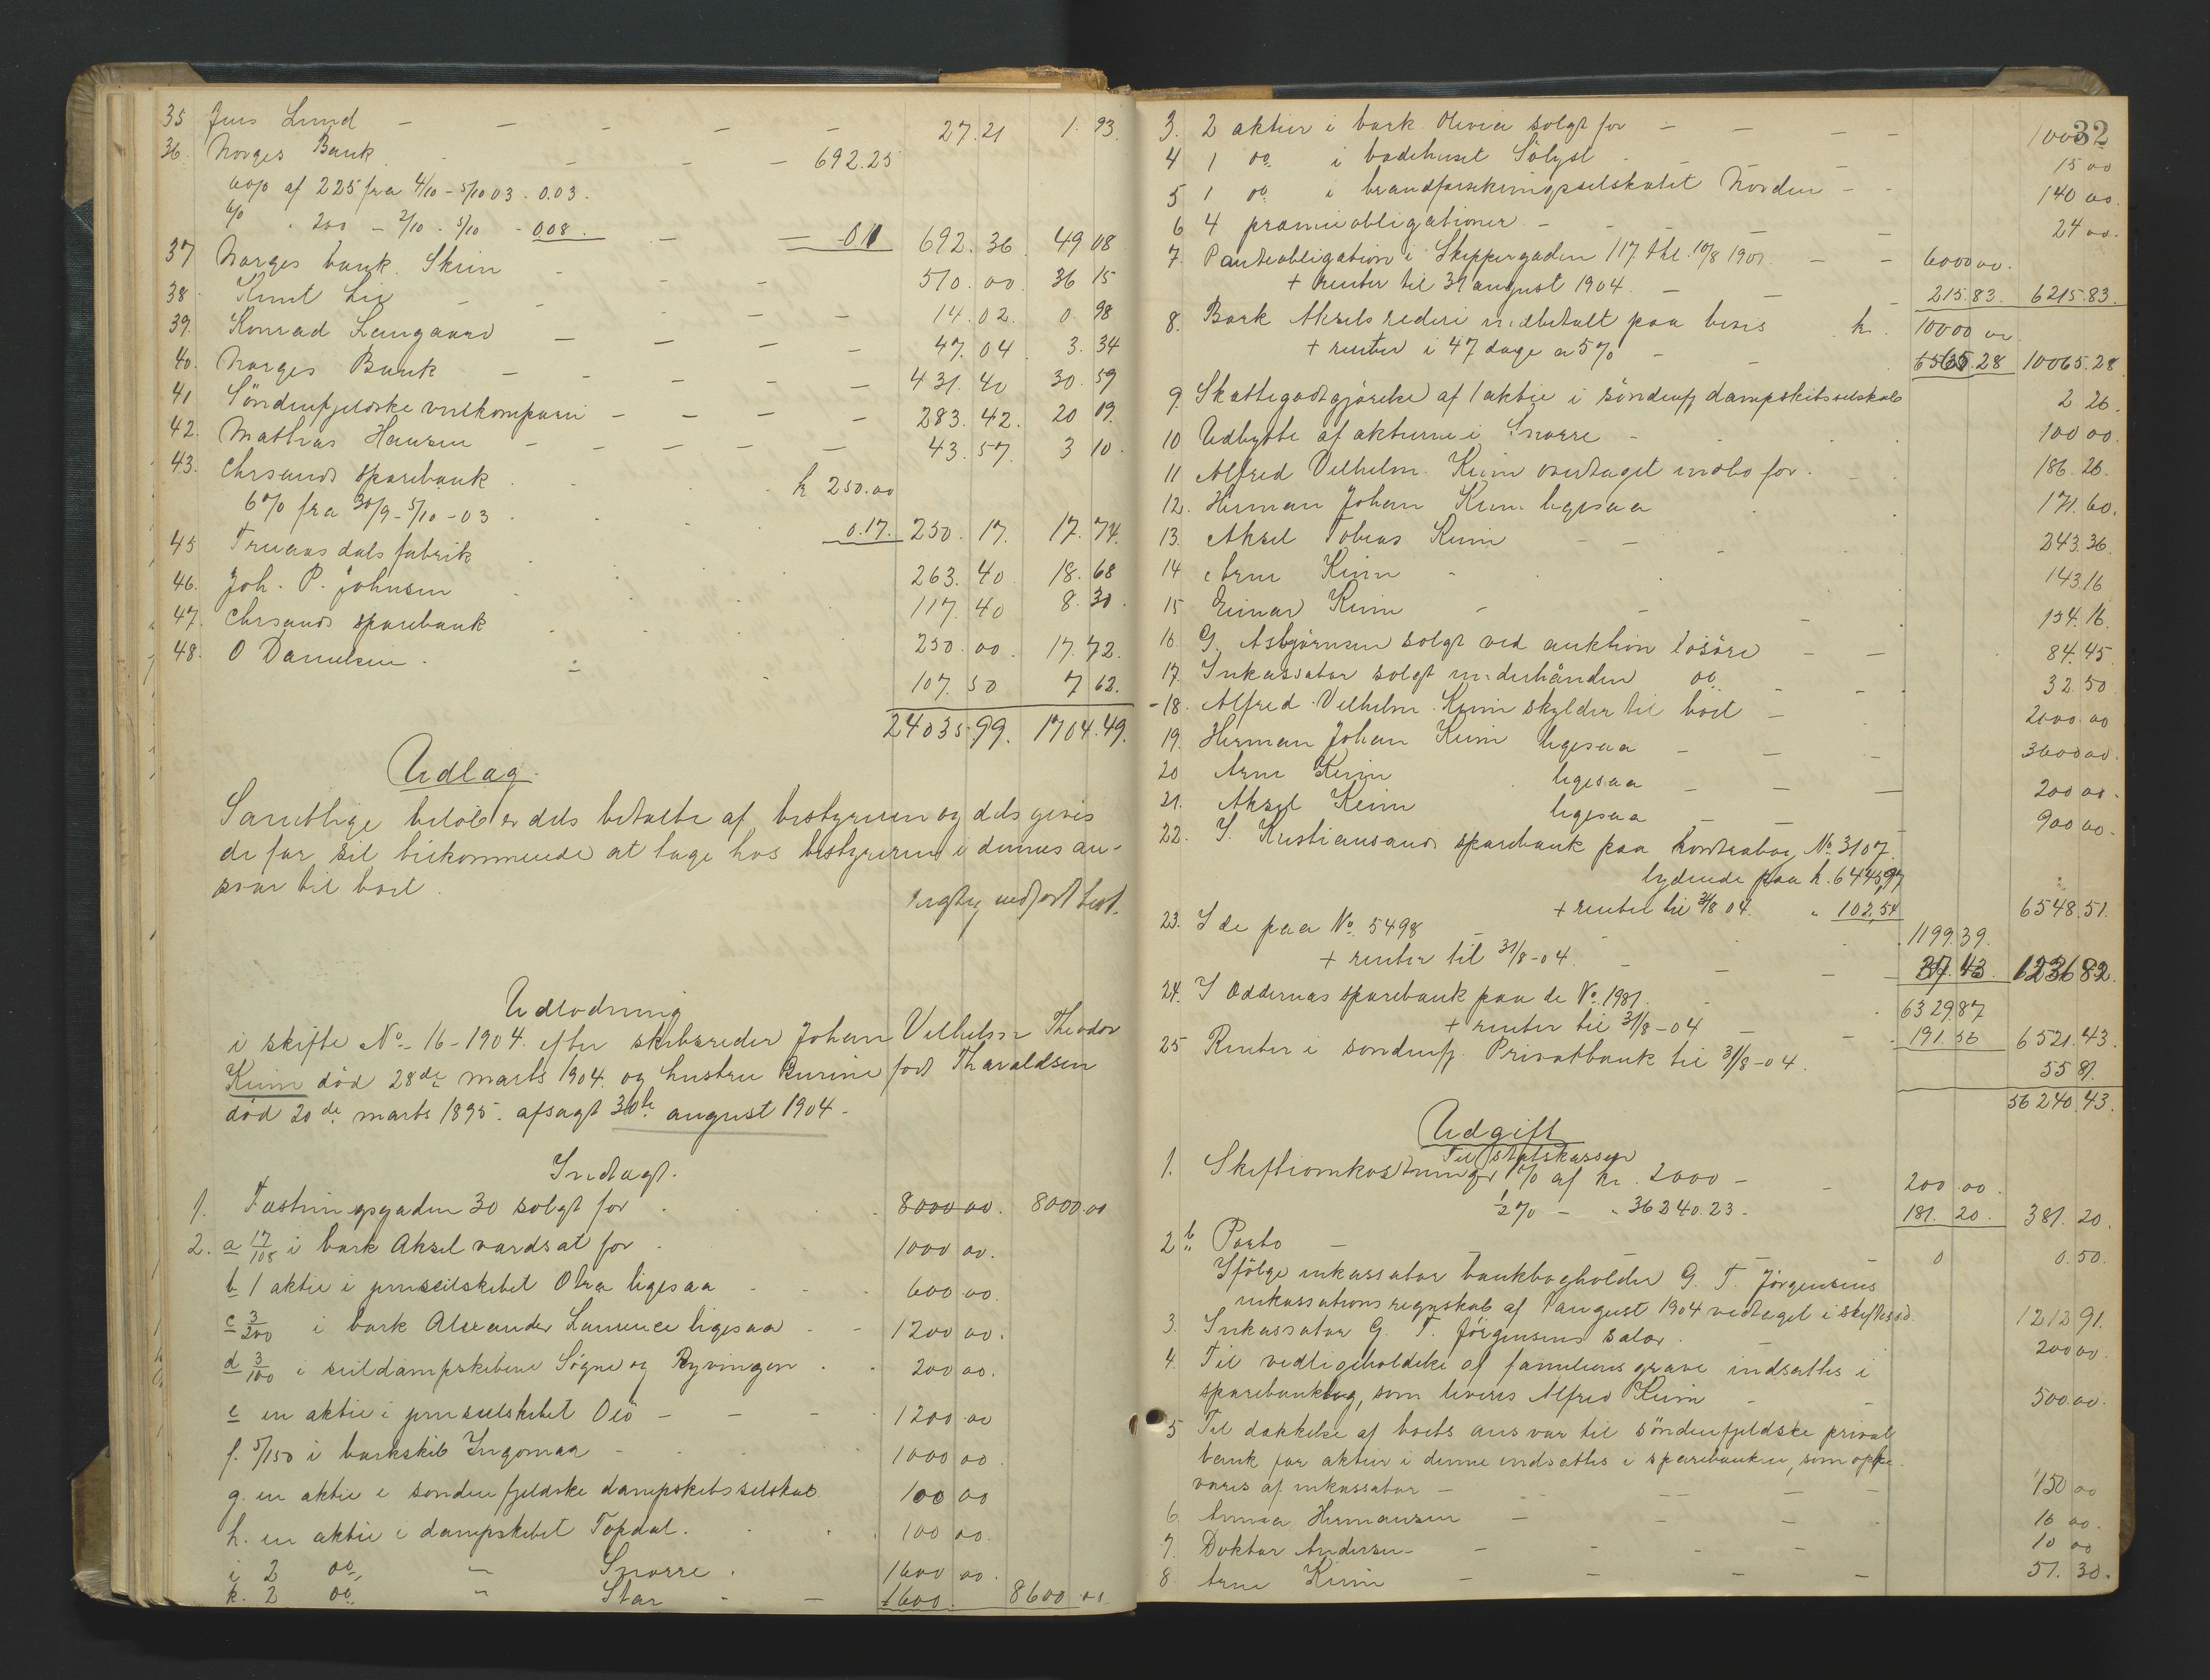 35 Jens Lund - - - - - 27.21 1.93.
36. Norges Bank - - 692.25
60/0 af 225 fra 4/10 - 5/10 03 - 0.03.
6/0 " 200 - 2/10 - 5/10 - 0.08. - - 0.11 692.36 49 08
37 Norges bank. Skien - - - 510.00. 36 15
38. Knut Lie - - - - 14.02. 0.98
39. Konrad Langaard - - - - 47.04 3.34
40. Norges Bank - - - - - 431.40 30.59
41 Söndenfjeldske vinkompani - - - - 283.42. 20 09.
42. Mathias Hansen - - - - 43.57. 3 10.
43. Chrsands sparebank . k 250.00
6% fra 30/9 - 5/10 - 03 . 0.17. 250.17. 17.74.
45 Fabrik 263.40 18.68
46. Joh. P. Johnsen 117.40 8.30.
47. Chrsands sparebank 250.00. 17.72.
48. O Danielsen. - 107.50 7 62.
24035.99. 1704.49.
Udlæg.
Samtlige beløb er dels betalte af bestyreren og dels gives
de for sit vedkommende at tage hos bestyreren i dennes an-
svar til boet.
rigtig udført
Udlodning
i skifte No. 16-1904. efter skibsreder Johan Vilhelm Theodor
Keim død 28de marts 1904. og hustru født Tharaldsen
død 20de marts 1895. afsagt 30te august 1904 -
Indtægt.
1. Fæstningsgaden 30 solgt for . 8000 00. 8000.00
2. a 17/108 i bark Aksel værdsat for . 1000 00.
b 1 aktie i jernseilskibet Otra ligesaa 600 00.
c 3/200 i bark Alexander Lawrence ligesaa - 1200 00.
d 3/100 i seildampskibene Søgne og Ryvingen . 200 00.
e en aktie i jernseilskibet - - - 1200 00
f. 5/150 i barkskib Ingomar - 1000 00
g. en aktie i sondenfjeldske dampskibsselskab. 100 00
h. en aktie i dampskibet Topdal. 100 00.
i 2 do " Snorre . 1600 00.
k. 2 do " Star - - 1600. 8600 00
32
3. 2 aktier i bark Olivia solgt for - - - - 1000
4 1 do i badehuset Sølyst - - - 15 00
5 1 do i brandforsikringsselskabet Norden - - 140 00.
6 4 præmieobligationer - - - - 24 00.
7. Panteobligation i Skippergaden 117 thl. 10/8 1901. - - 6000 00.
+ renter til 31 august 1904. - - 215.83. 6215.83.
8. Bark Aksels rederi indbetalt paa bevis kr. 10000 00
+ renter i 47 dage a 5% - 65.28 10065.28
9. Skattegodtgjørelse af 1 aktie i søndenfj dampskibsselskab 2 26.
10 Udbytte af aktierne i Snorre - 100 00.
11 Alfred Vilhelm Keim overtaget indbo for. 186.26.
12. Herman Johan Keim ligesaa 171.60.
13. Aksel Tobias Keim - - 243.36.
14 Arne Keim - 143.16
15 Einar Keim - - 154.16.
16 G. Asbjörnsen solgt ved auktion løsøre - - 84.45
17. Inkassator solgt underhånden do - - 32.50
- 18. Alfred Vilhelm Keim skylder til boet - 2000.00
19. Herman Johan Keim ligesaa - - 3600.00.
20 Arne Keim ligesaa - - - 200 00.
21. Aksel Keim ligesaa - - - 900 00.
22. I Kristiansands sparebank paa kontrabog No. 3107.
lydende paa k. 6445,97
+ renter til 31/8 04. " 102,54 6548.51.
23. I do paa No. 5498 1199.39.
+ renter til 31/8-04. - - - 37.43. 1236 82.
24. I Oddernæs sparebank paa do No. 1981. . 6329.87
+ renter til 31/8-04 - - 191.56 6521.43.
25 Renter i söndenfj. Privatbank til 31/8-04. 55 81.
56240.43.
Udgift
Til statskassen
1. Skifteomkostninger 1% af kr. 2000 - 200.00.
1/2% - " 36240.23 - 181.20. 381.20.
2 b Porto - - - - 0 0.50.
Ifølge inkassator bankbogholder G. T. Jörgensens
inkassationsregnskab af 1 august 1904 vedtaget i skiftesed. 1212 91.
3. Inkassator G. T. Jörgensens salær. 200 00.
4. Til vedligeholdelse af familiens grave indsættes i
sparebankbog, som leveres Alfred Keim - - 500.00.
5 Til dækkelse af boets ansvar til söndenfjeldske privat
bank for aktier i denne indsættes i sparebanken, som opbe-
vares af inkassator - - - - - 150 00
6. Anna Hermansen - - - - 16 00.
7. Doktor Andersen - - - - 10 00
8. Arne Keim - - - - 51.30.